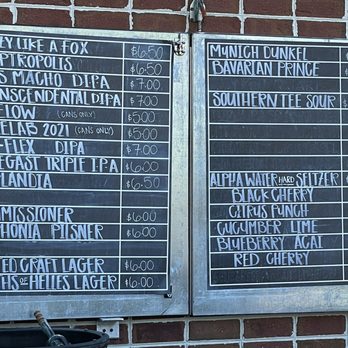 EY LIKE A FOX $6.50
PTROPOLIS $6.50
S MACHO DIPA $7.00
NSCENDENTAL DIPA $7.00
FLOW (CANS ONLY) $5.00
ELAB 2021 (CANS ONLY) $5.00
-FLEX DIPA $7.00
EGAST TRIPLE I.P.A $6.00
LANDIA $6.50
MISSIONER $6.00
HONIA PILSNER $6.00
TED CRAFT LAGER $6.00
HS OF HELLES LAGER $6.00
MUNICH DUNKEL
BAVARIAN PRINCE
SOUTHERN TEE SOUR
ALPHA WATER HARD SELTZER
BLACK CHERRY
CITRUS PUNCH
CUCUMBER LIME
BLUEBERRY ACAI
RED CHERRY